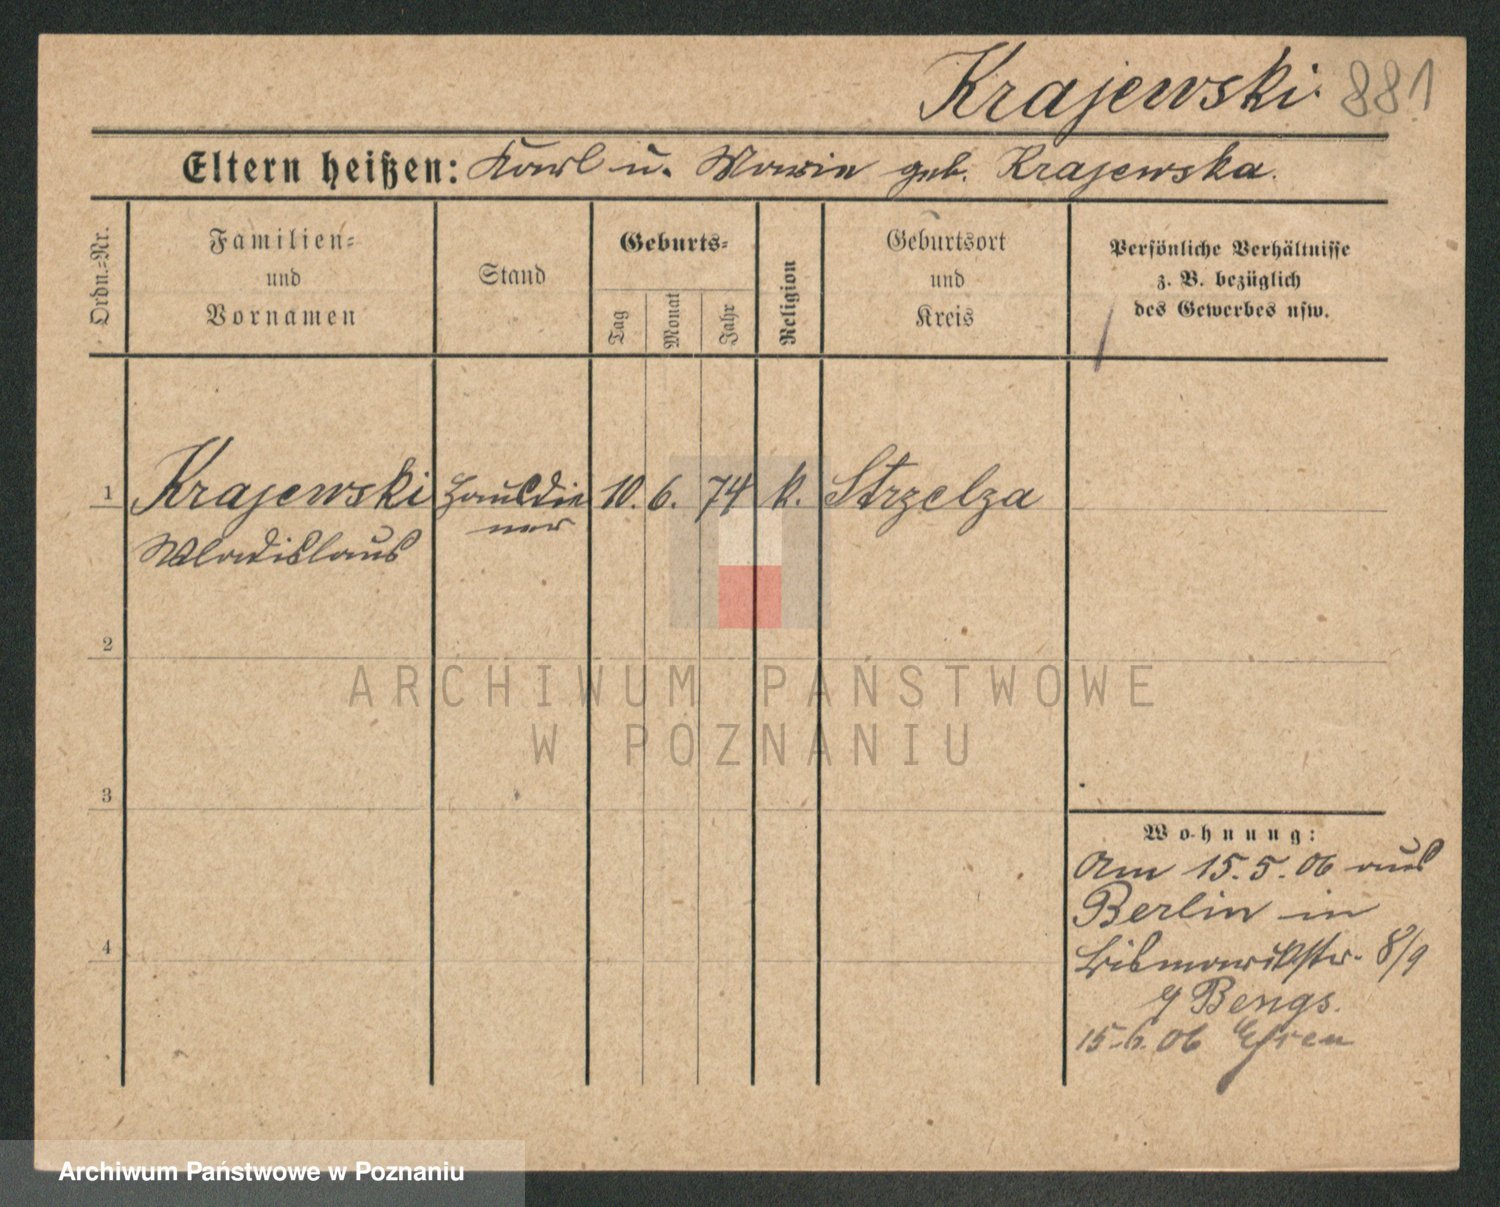 Krajewski. 881
Eltern heißen: Karl u. Maria geb. Krajewska.
Ordn.=Nr.
Familien=
und
Vornamen
Stand
Geburts=
Tag
Monat
Jahr
Religion
Geburtsort
und
Kreis
Persönliche Verhältnisse
z. B. bezüglich
des Gewerbes usw.
1 Krajewski Hausdie 10. 6. 74 k. Strzelza
Wladislaus ner
2
3
4
Wohnung:
Am 15.5.06 aus
Berlin in
Bismarckstr. 8/9
Bengs.
15.6.06
ARCHIWUM PAŃSTWOWE
W POZNANIU
Archiwum Państwowe w Poznaniu